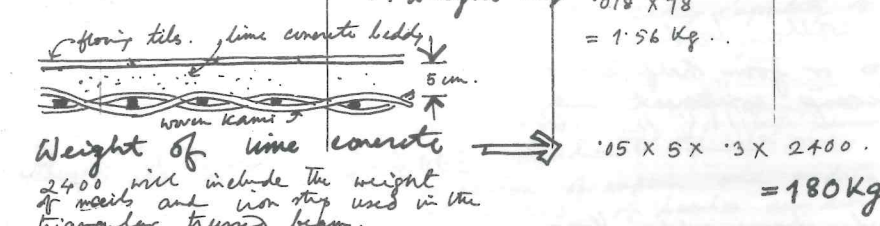 ·018 X 78
= 1·56 Kg ..
flooring tils. lime concrete bedding
5 cm.
woven Kami
Weight of lime concrete
·05 X 5 X ·3 X 2400.
= 180 Kg
2400 will include the weight
of nails and iron strip used in the
triangular trussed beam.